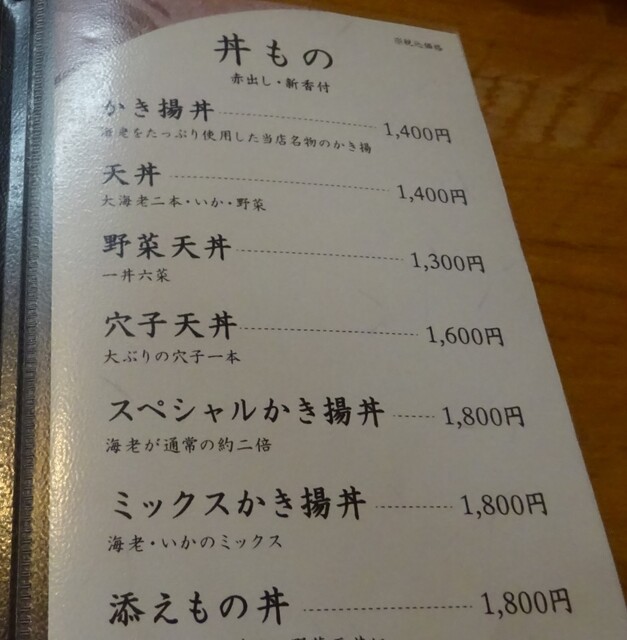 丼もの
赤出し・新香付
かき揚丼 1,400円
海老をたっぷり使用した当店名物のかき揚
天丼 1,400円
大海老二本・いか・野菜
野菜天丼 1,300円
一丼六菜
穴子天丼 1,600円
大ぶりの穴子一本
スペシャルかき揚丼 1,800円
海老が通常の約二倍
ミックスかき揚丼 1,800円
海老・いかのミックス
添えもの丼 1,800円